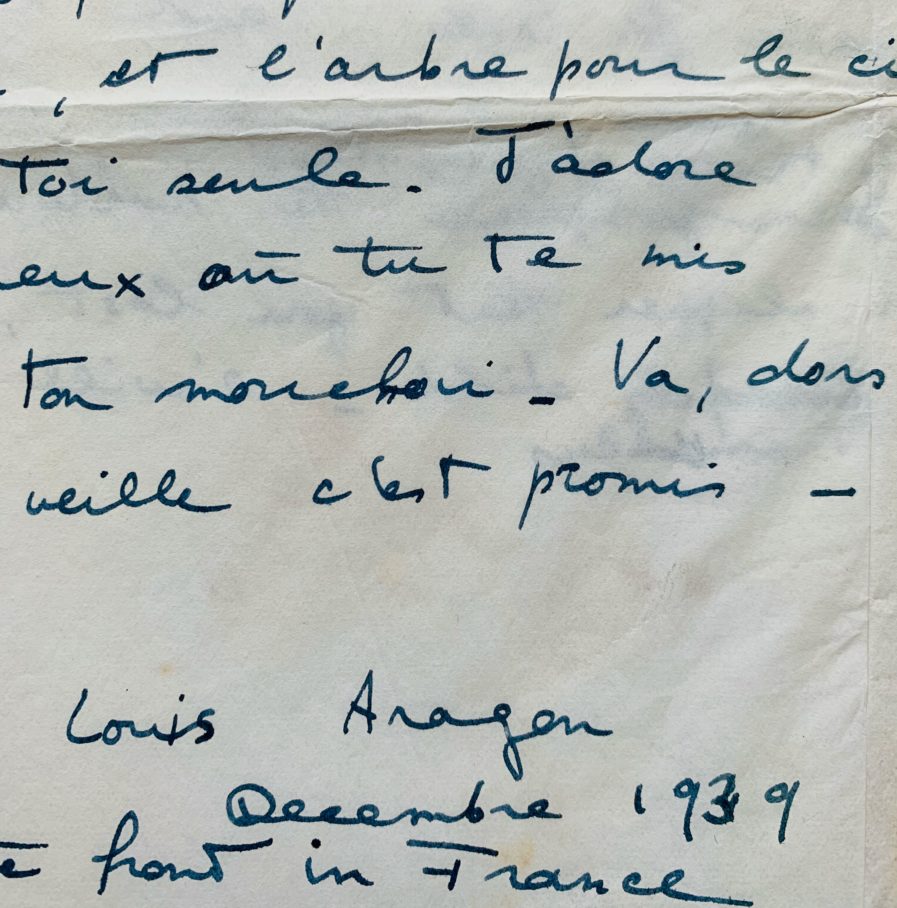 , et l'arbre pour le ci
toi seule. J'adore
eux où tu te mis
ton mouchoir - Va, dors
veille c'est promis -
Louis Aragon
Decembre 1939
e front in France